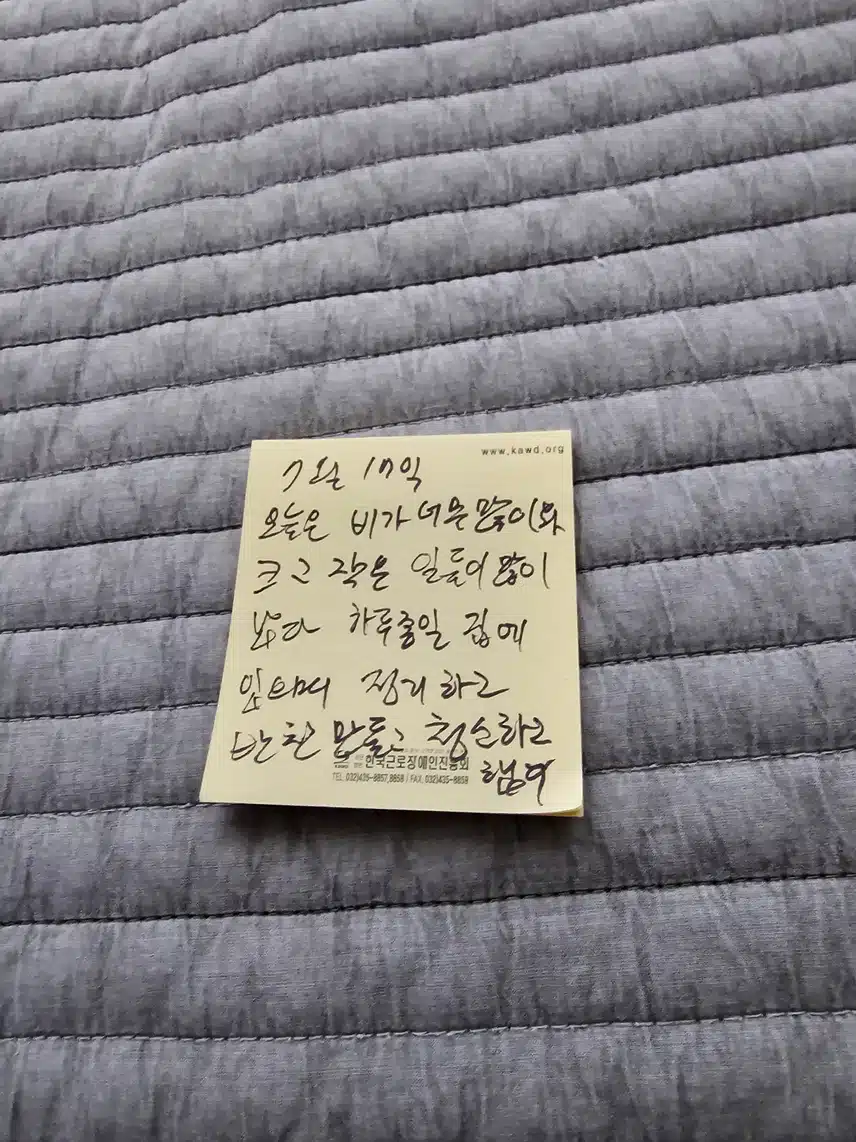 www.kawd.org
7월 17일
오늘은 비가 너무 많이 와
크고 작은 일들이 많이
났다 하루종일 집에
있으며 정리하고
반찬 만들고 청소하고
했다
한국근로장애인진흥회
TEL. 032)435-8857, 8858 / FAX. 032)435-8859